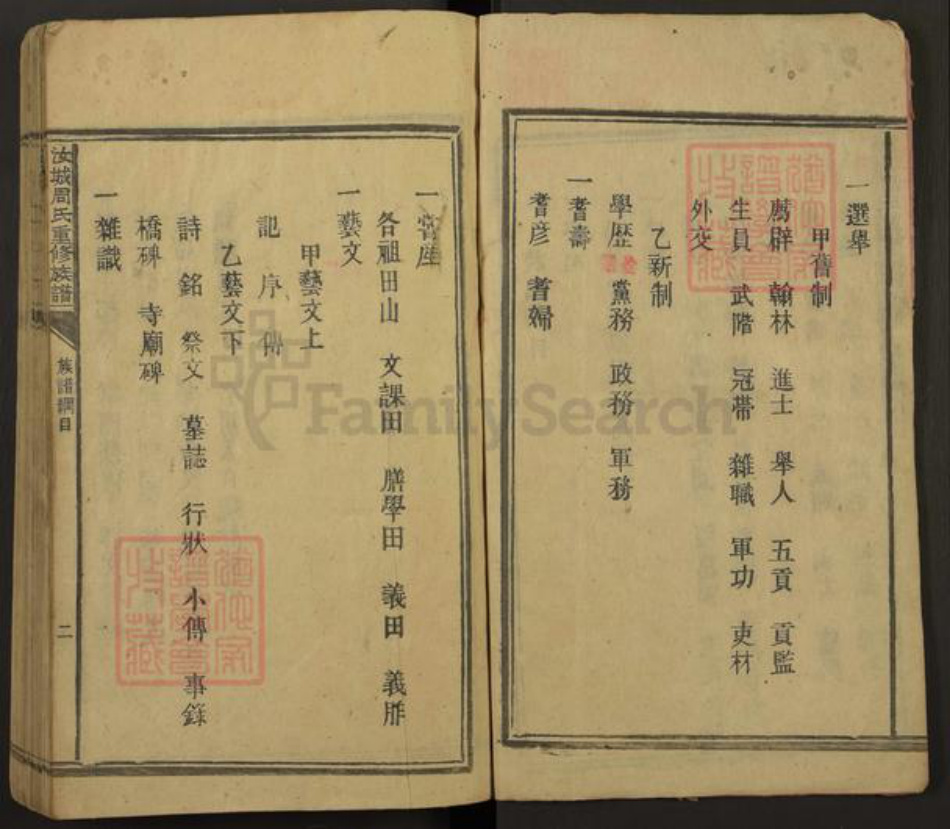 一選舉
甲舊制
薦辟 翰林 進士 舉人 五貢 貢監
生員 武階 冠帶 雜職 軍功 吏材
外交
乙新制
學歷 黨務 政務 軍務
一耆壽
耆彦 耆婦
一管座
各祖田山 文課田 膳學田 義田 義胙
一藝文
甲藝文上
記 序 傳
乙藝文下
詩 銘 祭文 墓誌 行狀 小傳 事錄
橋碑 寺廟碑
一雜識
汝城周氏重修族譜
族譜綱目
二
FamilySearch